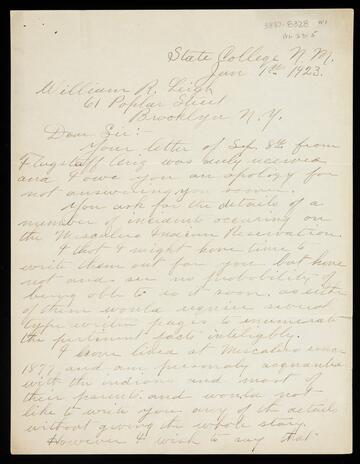 3827-8328
State College N. M.
Jan 1st 1923.
William R. Leigh
61 Poplar Street
Brooklyn N. Y.
Dear Sir:-
Your letter of Sep. 8th from
Flagstaff Ariz was duly received
and I owe you an apology for
not answering you sooner.
You ask for the details of a
number of incidents occuring on
the Mescalero Indian Reservation.
I thot I might have time to
write them out for you but have
not and see no probability of
being able to do it soon, as either
of them would require several
type written pages to enumerate
the pertinent facts inteligbly.
I have lived at Mescalero since
1877 and am personaly acquainted
with the indians and most of
their parents and would not
like to write you any of the details
without giving the whole story.
However I wish to say that